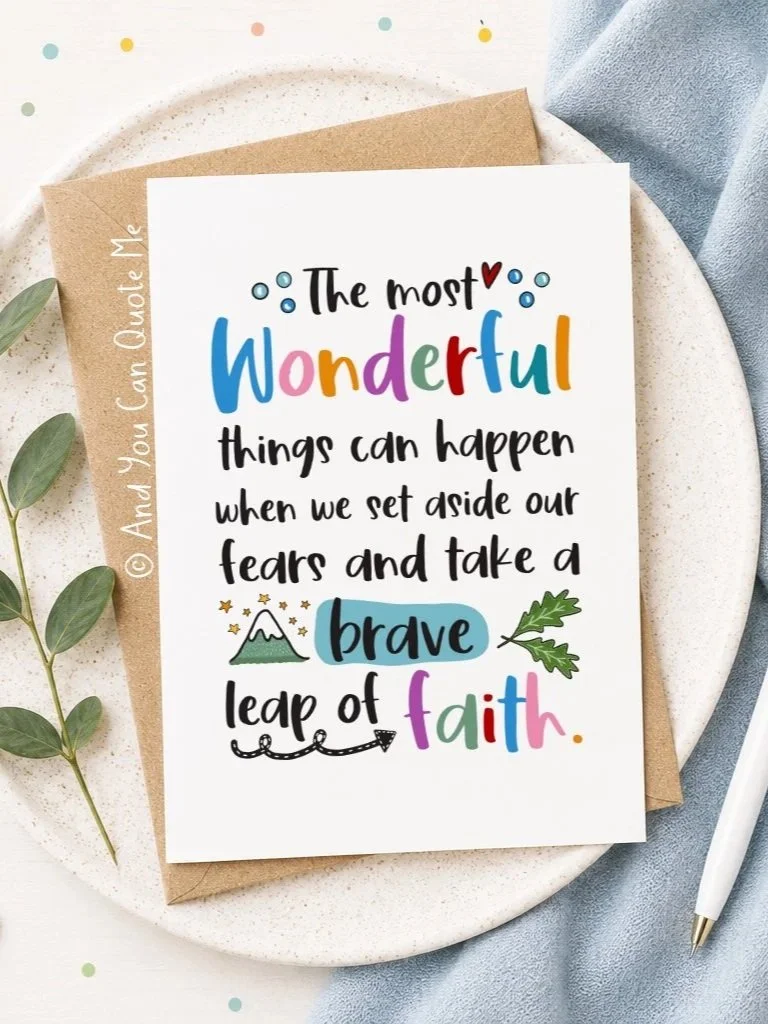 The most
Wonderful
things can happen
when we set aside our
fears and take a
brave
leap of faith.
© And You Can Quote Me